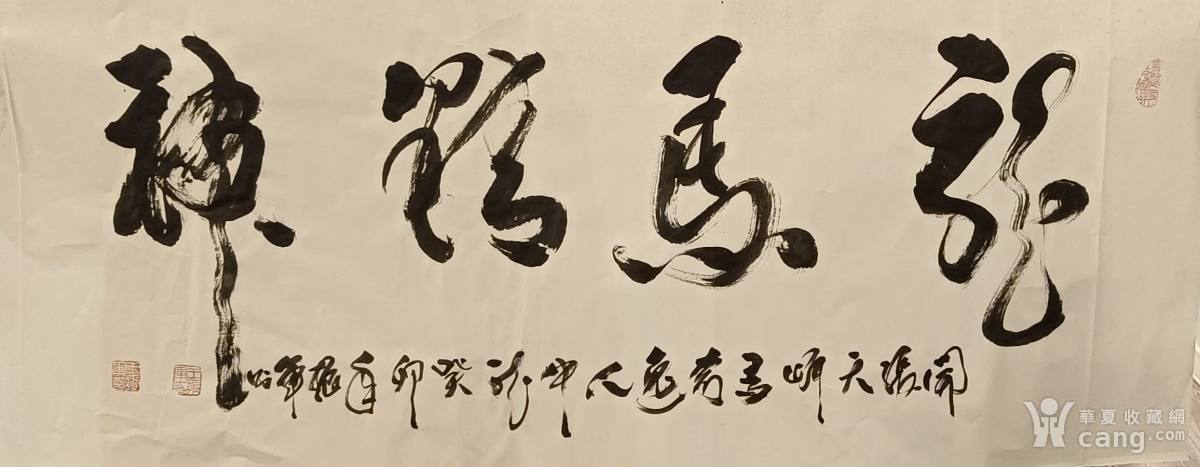 龍馬精神
開張天岸馬奇逸人中龍癸卯年
華夏收藏網
cang.com